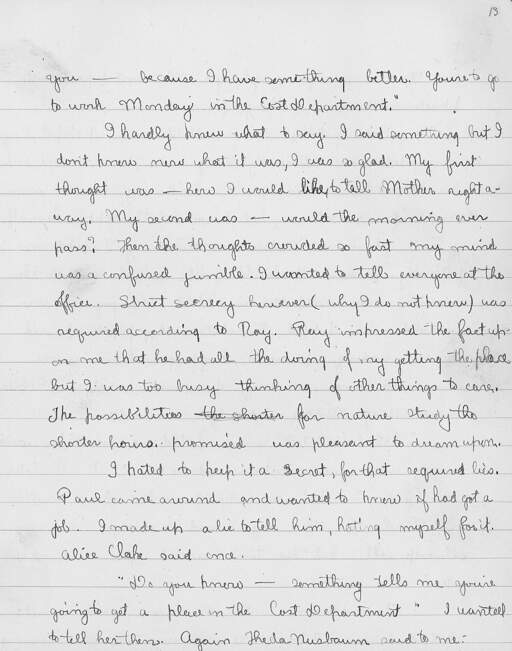 13
you — because I have something better. You're to go
to work Monday in the Cost Department."
I hardly knew what to say. I said something but I
don't know now what it was, I was so glad. My first
thought was — how I would like to tell Mother right a-
way. My second was — would the morning ever
pass? Then the thoughts crowded so fast my mind
was a confused jumble. I wanted to tell everyone at the
office. Strict secrecy however (why I do not know) was
required according to Ray. Ray impressed the fact up-
on me that he had all the doing of my getting the place
but I was too busy thinking of other things to care.
The possibilities the shorter for nature study the
shorter hours promised was pleasant to dream upon.
I hated to keep it a secret, for that required lies.
Paul came around and wanted to know if had got a
job. I made up a lie to tell him, hating myself for it.
Alice Clake said once.
"Do you know — something tells me you're
going to get a place in the Cost Department" I wanted
to tell her then. Again Theila Nusbaum said to me:-